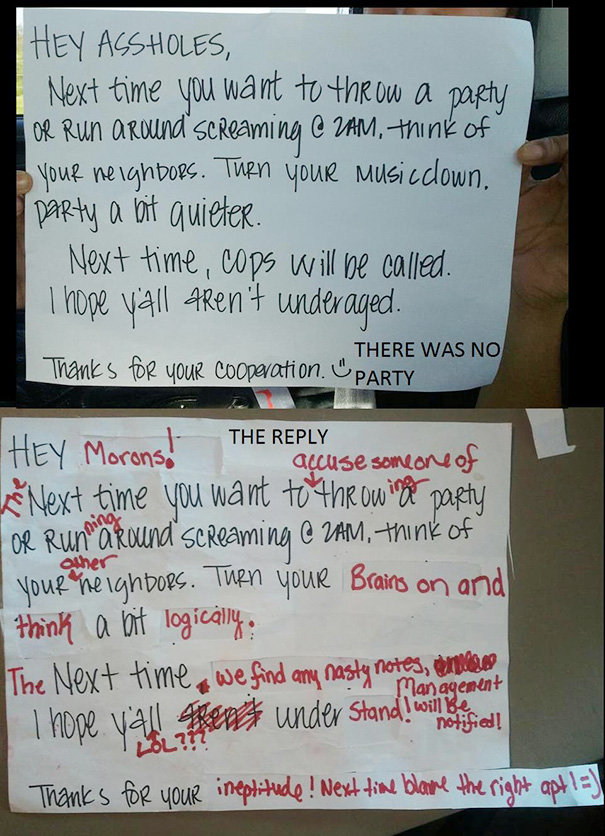 HEY ASSHOLES,
Next time you want to throw a party
or run around screaming @ 2AM, think of
your neighbors. Turn your music down,
party a bit quieter.
Next time, cops will be called.
I hope y'all aren't underaged.
Thanks for your cooperation.
THERE WAS NO
PARTY
THE REPLY
HEY Morons!
accuse someone of
The Next time you want to throwing a party
or Running around screaming @ 2AM, think of
other
your neighbors. Turn your Brains on and
think a bit logically.
The Next time, we find any nasty notes,
Management
will be
notified!
I hope y'all aren't under stand!
LOL???
Thanks for your ineptitude! Next time blame the right apt! =)